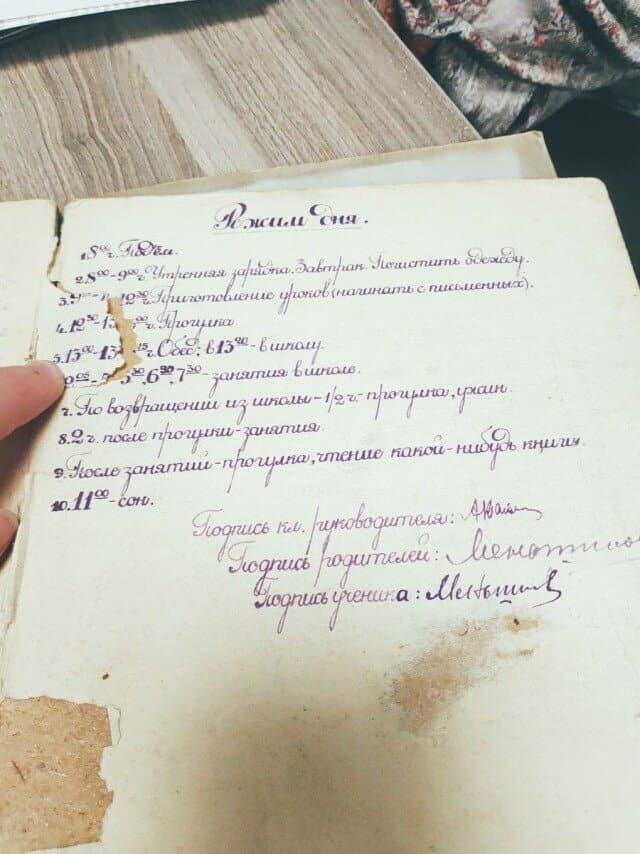 Режим дня.
1. 8⁰⁰ч. Подъём.
2. 8⁰⁰-9⁰⁰ч Утренняя зарядка. Завтрак. Почистить одежду.
3. 12³⁰ Приготовление уроков (начинать с письменных).
4. 12³⁰-13⁰⁰ч. Прогулка.
5. 13⁰⁰-13¹⁵ч. Обед; в 13²⁰-в школу.
5³⁰, 6³⁰, 7³⁰-занятия в школе.
7. По возвращении из школы-1/2 ч-прогулка, ужин.
8. 2 ч. после прогулки-занятия.
9. После занятий-прогулка, чтение какой-нибудь книги.
10. 11⁰⁰-сон.
Подпись кл. руководителя:
Подпись родителей:
Подпись ученика: